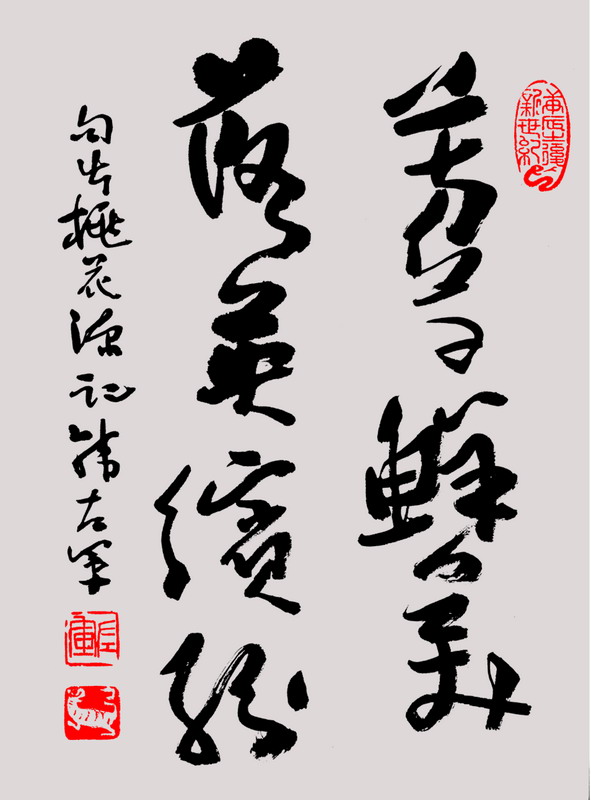 芳草鮮美
落英繽紛
句出桃花源記韓左軍